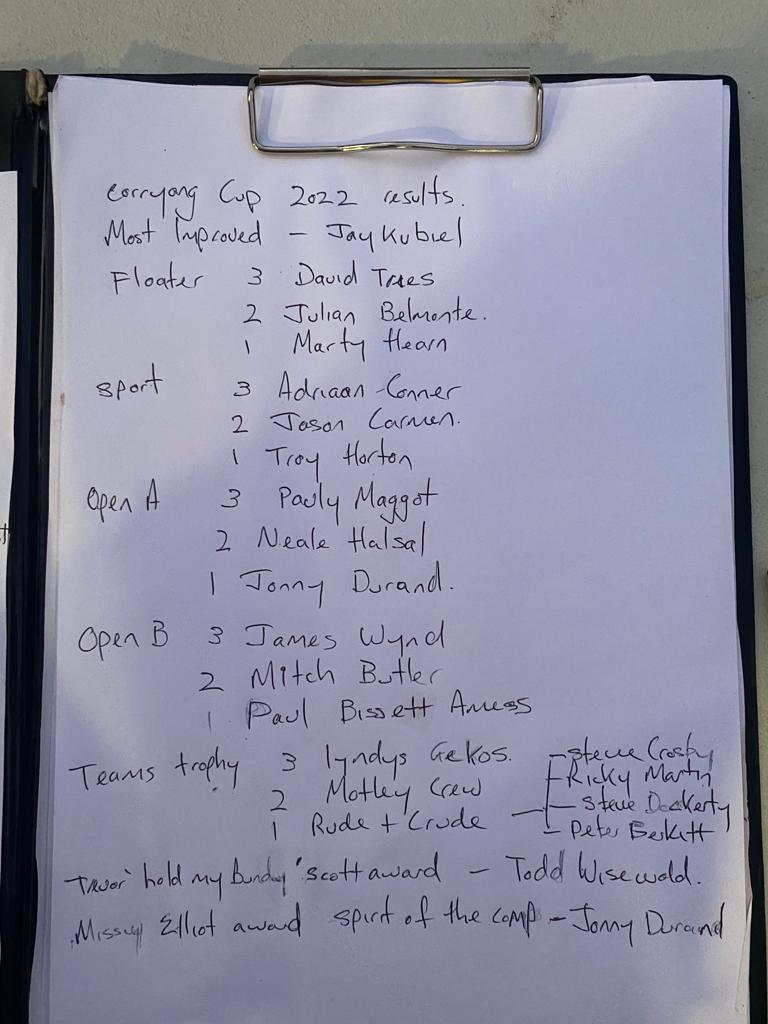 Corryong Cup 2022 results.
Most Improved - Jay Kubiel
Floater 3 David Trees
2 Julian Belmonte.
1 Marty Hearn
Sport 3 Adriaan Conner
2 Jason Carmen.
1 Troy Horton
Open A 3 Pauly Maggot
2 Neale Halsal
1 Jonny Durand.
Open B 3 James Wynd
2 Mitch Butler
1 Paul Bissett Amess
Teams trophy 3 lyndys Gekos.
2 Motley Crew
1 Rude + Crude
- Steve Crosby
- Ricky Martin
- Steve Dockerty
- Peter Beckett
Trevor "hold my bundy" Scott award - Todd Wisewold.
Missy Elliot award spirit of the comp - Jonny Durand